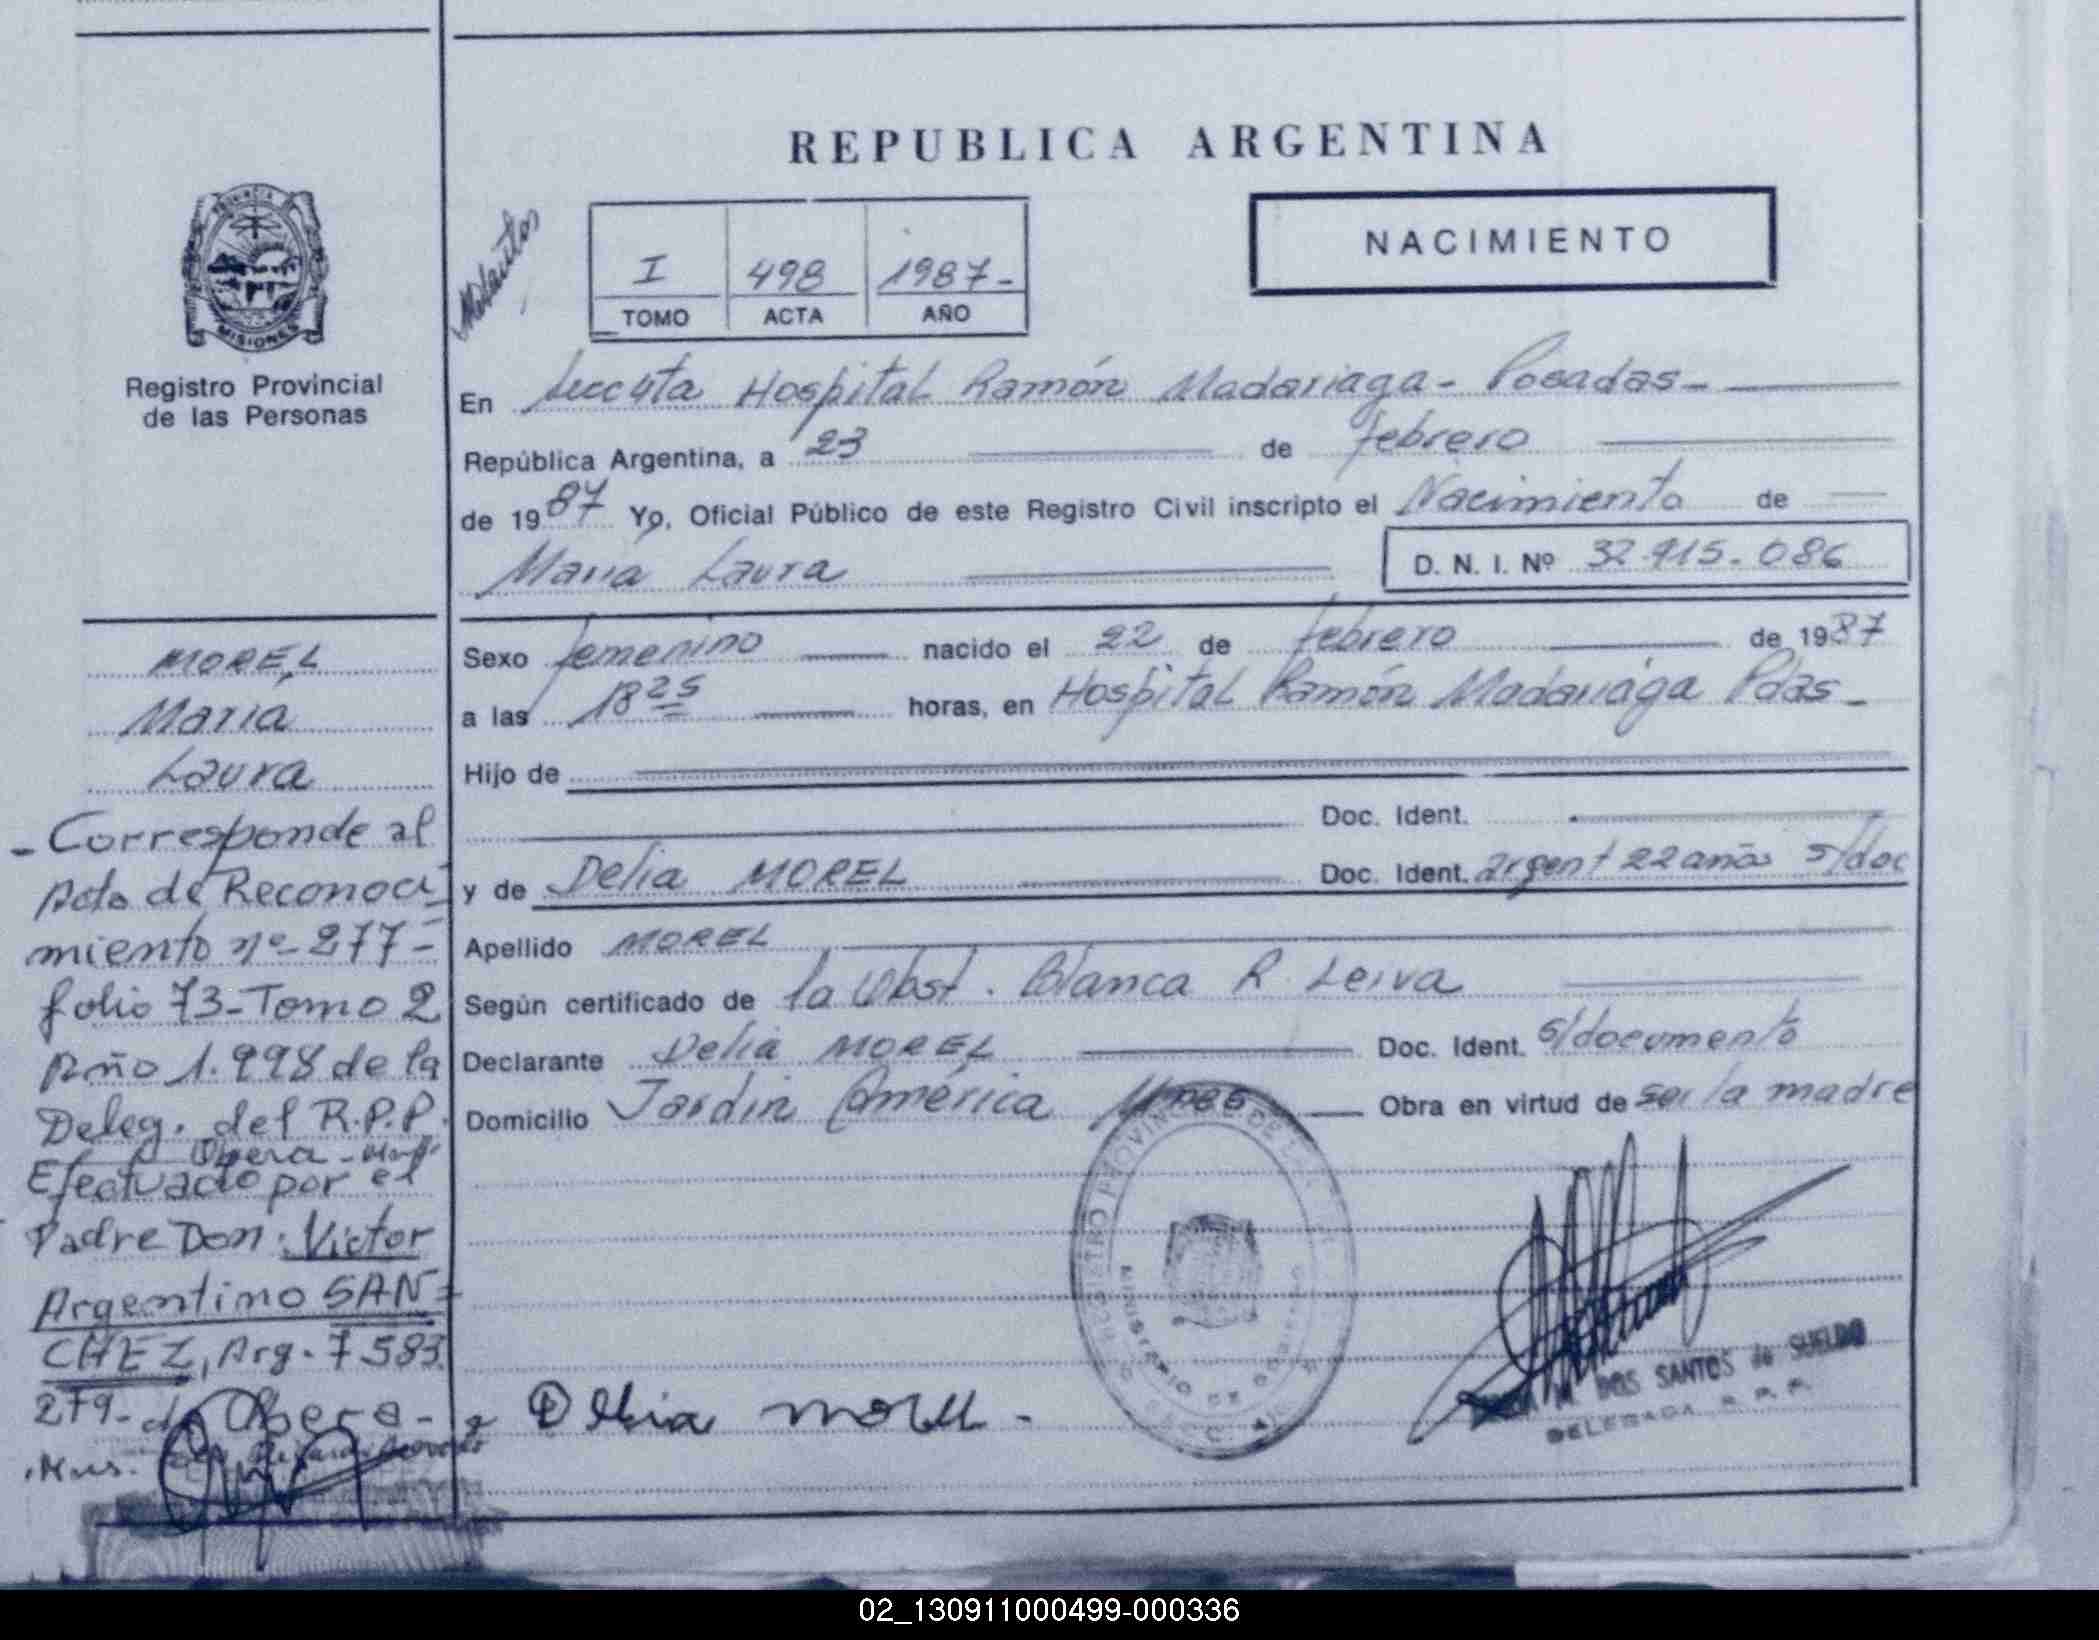 REPUBLICA ARGENTINA
NACIMIENTO
I 498 1987-
TOMO ACTA AÑO
PROVINCIA DE
MISIONES
Registro Provincial
de las Personas
En Secc 4ta Hospital Ramón Madariaga - Posadas -
República Argentina, a 23 de febrero
de 1987 Yo, Oficial Público de este Registro Civil inscripto el Nacimiento de
María Laura D. N. I. Nº 32.915.086
Sexo femenino nacido el 22 de febrero de 1987
a las 18 25 horas, en Hospital Ramón Madariaga Pdas -
Hijo de
Doc. Ident.
y de Delia MOREL Doc. Ident. argent 22 años s/doc
Apellido MOREL
Según certificado de la Obst. Blanca R. Leiva
Declarante Delia MOREL Doc. Ident. s/documento
Domicilio Jardín América Mnes Obra en virtud de ser la madre
MOREL
María
Laura
- Corresponde al
Acta de Reconoci
miento nº 277-
folio 73-Tomo 2
Año 1.998 de la
Deleg. del R.P.P.
Obera -
Efectuado por el
Padre Don: Victor
Argentino SAN=
CHEZ, Arg. 7 583
279- de Obera -
Mns.
Delia morel -
REGISTRO PROVINCIAL DE LAS
MINISTERIO DE GOBIERNO
M. DOS SANTOS de SUELDO
DELEGADA R. P. P.
02_130911000499-000336